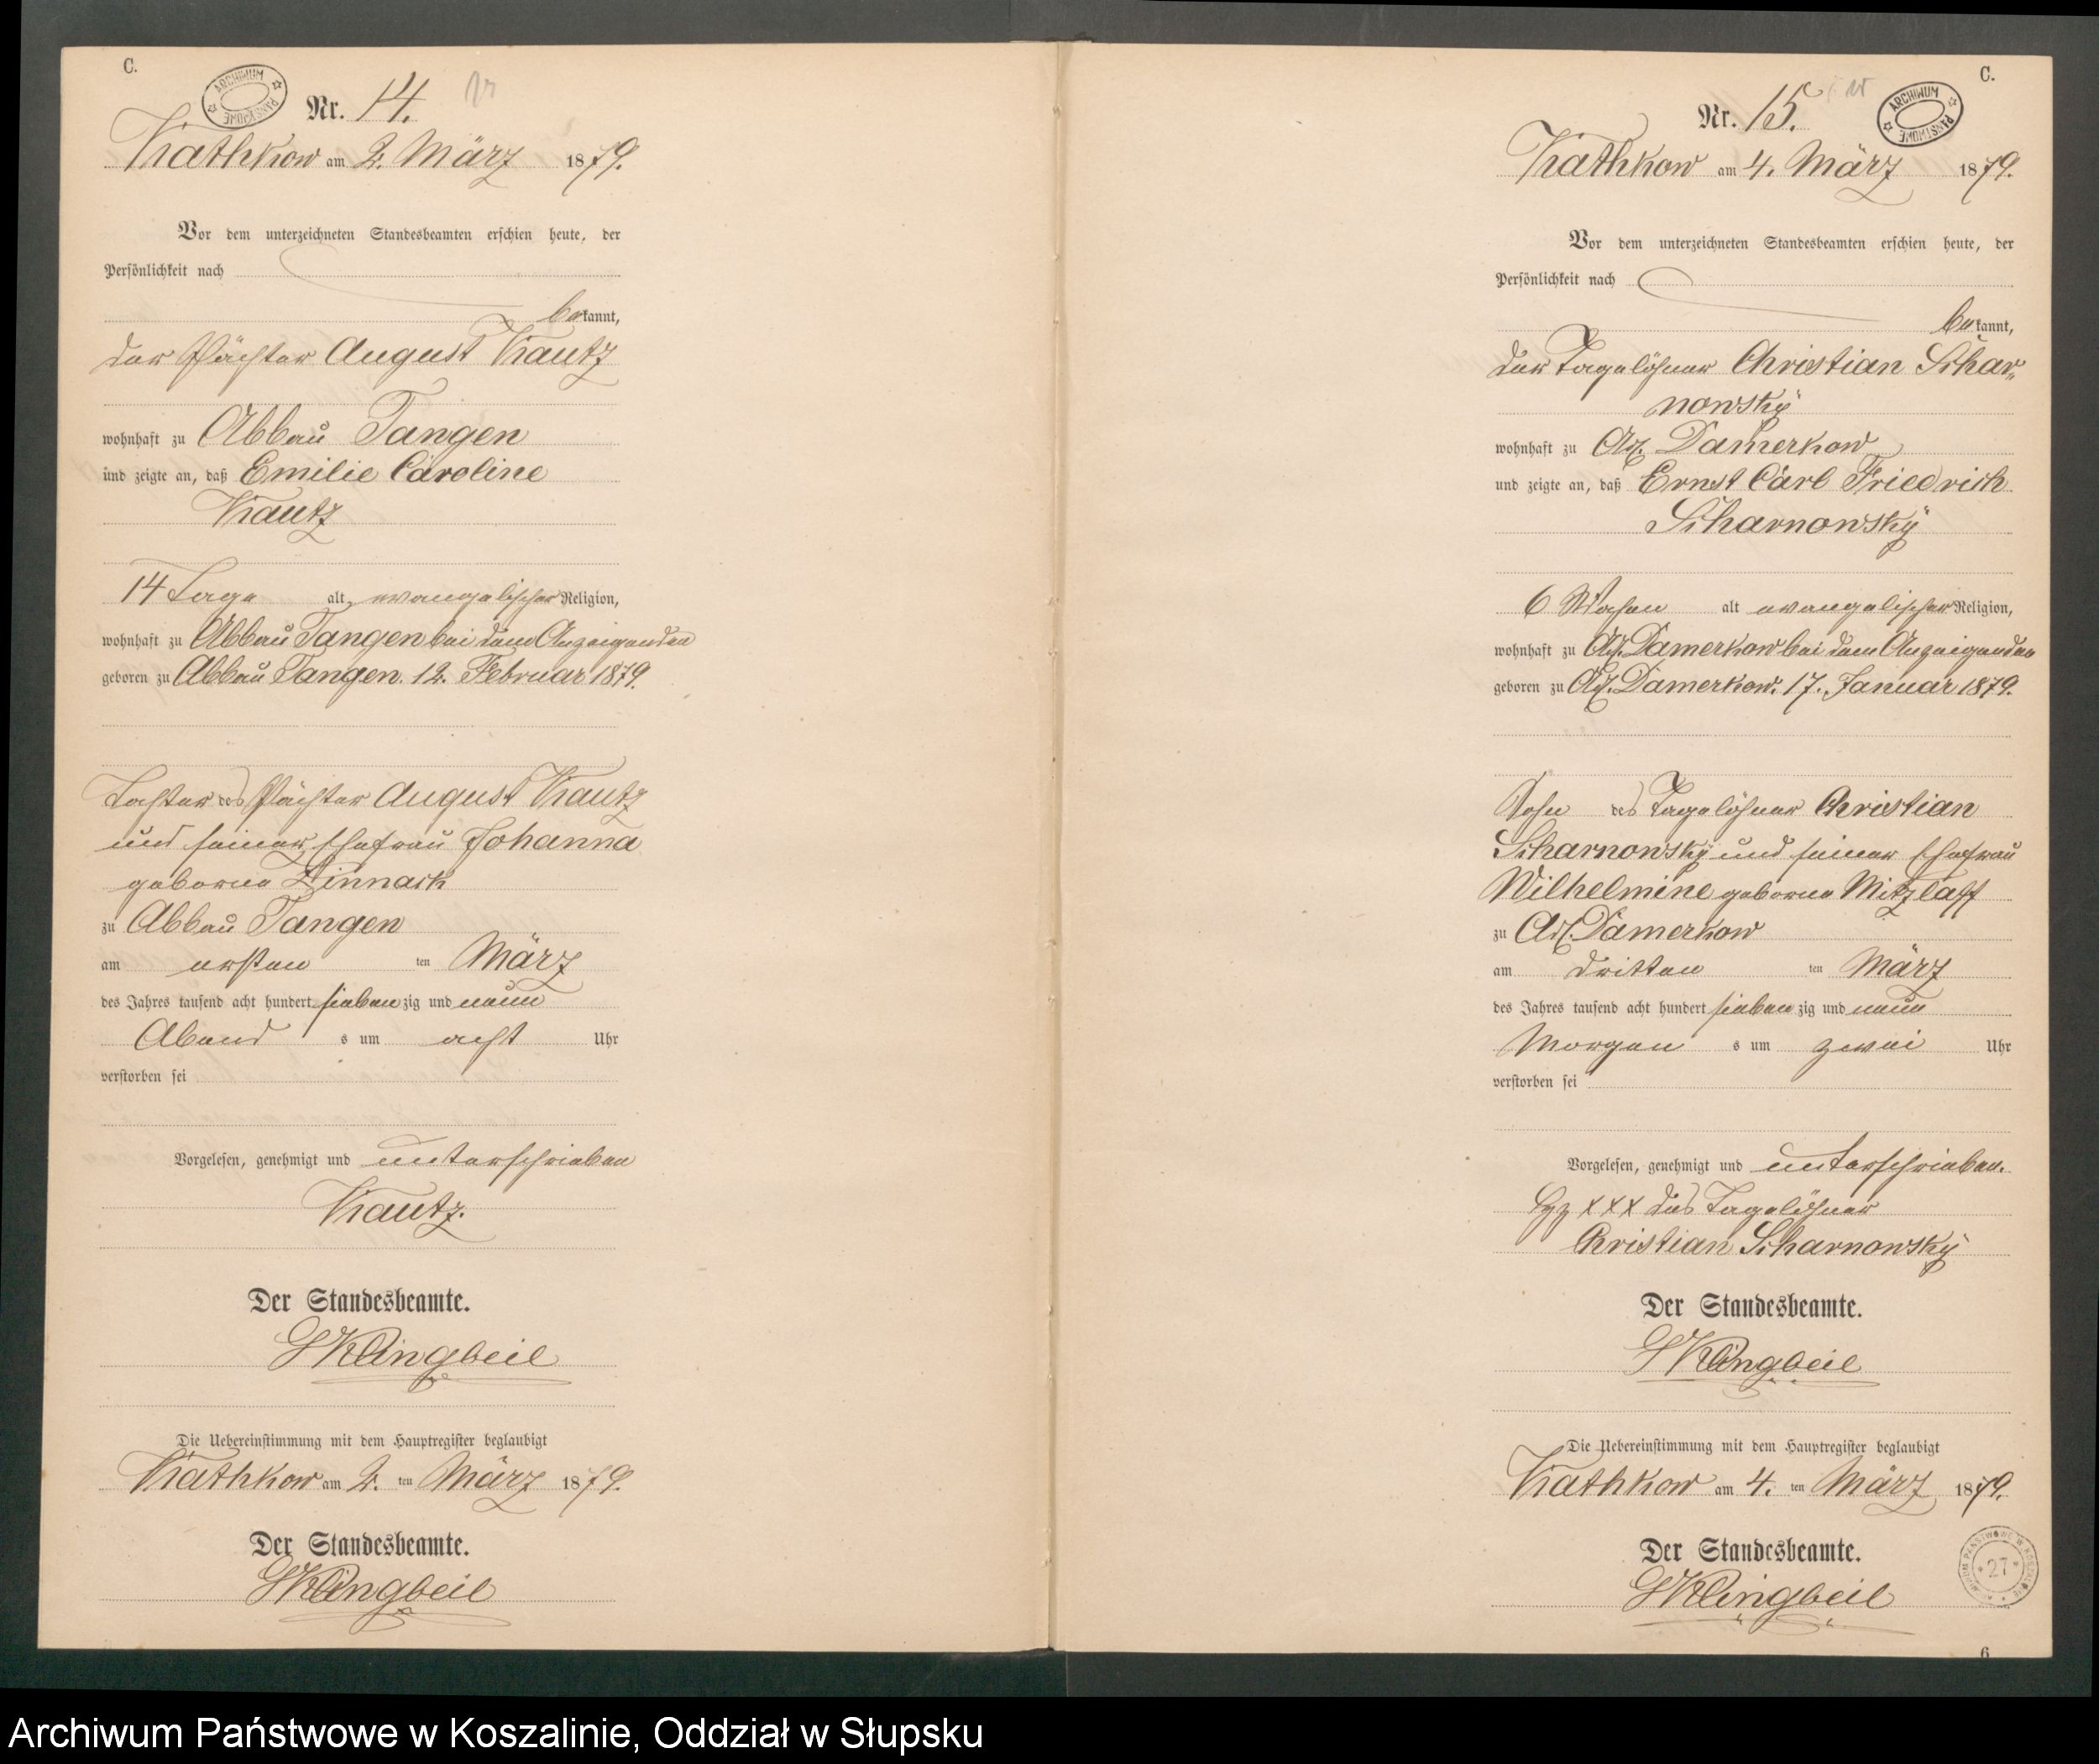 C.
ARCHIWUM PAŃSTWOWE
Nr. 14.
Kathkow am 2. März 1879.
Vor dem unterzeichneten Standesbeamten erschien heute, der
Persönlichkeit nach
bekannt,
der Pächter August Kautz
wohnhaft zu Abbau Jangen
und zeigte an, daß Emilie Caroline
Kautz
14 Tage alt, evangelischer Religion,
wohnhaft zu Abbau Jangen bei dem Anzeigenden
geboren zu Abbau Jangen. 12. Februar 1879.
Tochter des Pächter August Kautz
und seiner Ehefrau Johanna
geborne Zinnack
zu Abbau Jangen
am ersten ten März
des Jahres tausend acht hundert siebenzig und neun
Abend s um acht Uhr
verstorben sei
Vorgelesen, genehmigt und unterschrieben
Kautz.
Der Standesbeamte.
Klingbeil
Die Uebereinstimmung mit dem Hauptregister beglaubigt
Kathkow am 2. ten März 1879.
Der Standesbeamte.
Klingbeil
C.
Nr. 15.
ARCHIWUM PAŃSTWOWE
Kathkow am 4. März 1879.
Vor dem unterzeichneten Standesbeamten erschien heute, der
Persönlichkeit nach
bekannt,
der Tagelöhner Christian Schar„
nowský
wohnhaft zu Adl. Damerkow
und zeigte an, daß Ernst Carl Friedrich
Scharnowský
6 Wochen alt evangelischer Religion,
wohnhaft zu Adl. Damerkow bei dem Anzeigenden
geboren zu Adl. Damerkow. 17. Januar 1879.
Sohn des Tagelöhner Christian
Scharnowský und seiner Ehefrau
Wilhelmine geborne Mitzlaff
zu Adl. Damerkow
am dritten ten März
des Jahres tausend acht hundert siebenzig und neun
Morgen s um zwei Uhr
verstorben sei
Vorgelesen, genehmigt und unterschrieben.
xxx des Tagelöhner
Christian Scharnowský
Der Standesbeamte.
Klingbeil
Die Uebereinstimmung mit dem Hauptregister beglaubigt
Kathkow am 4. ten März 1879.
Der Standesbeamte.
Klingbeil
27
6
Archiwum Państwowe w Koszalinie, Oddział w Słupsku